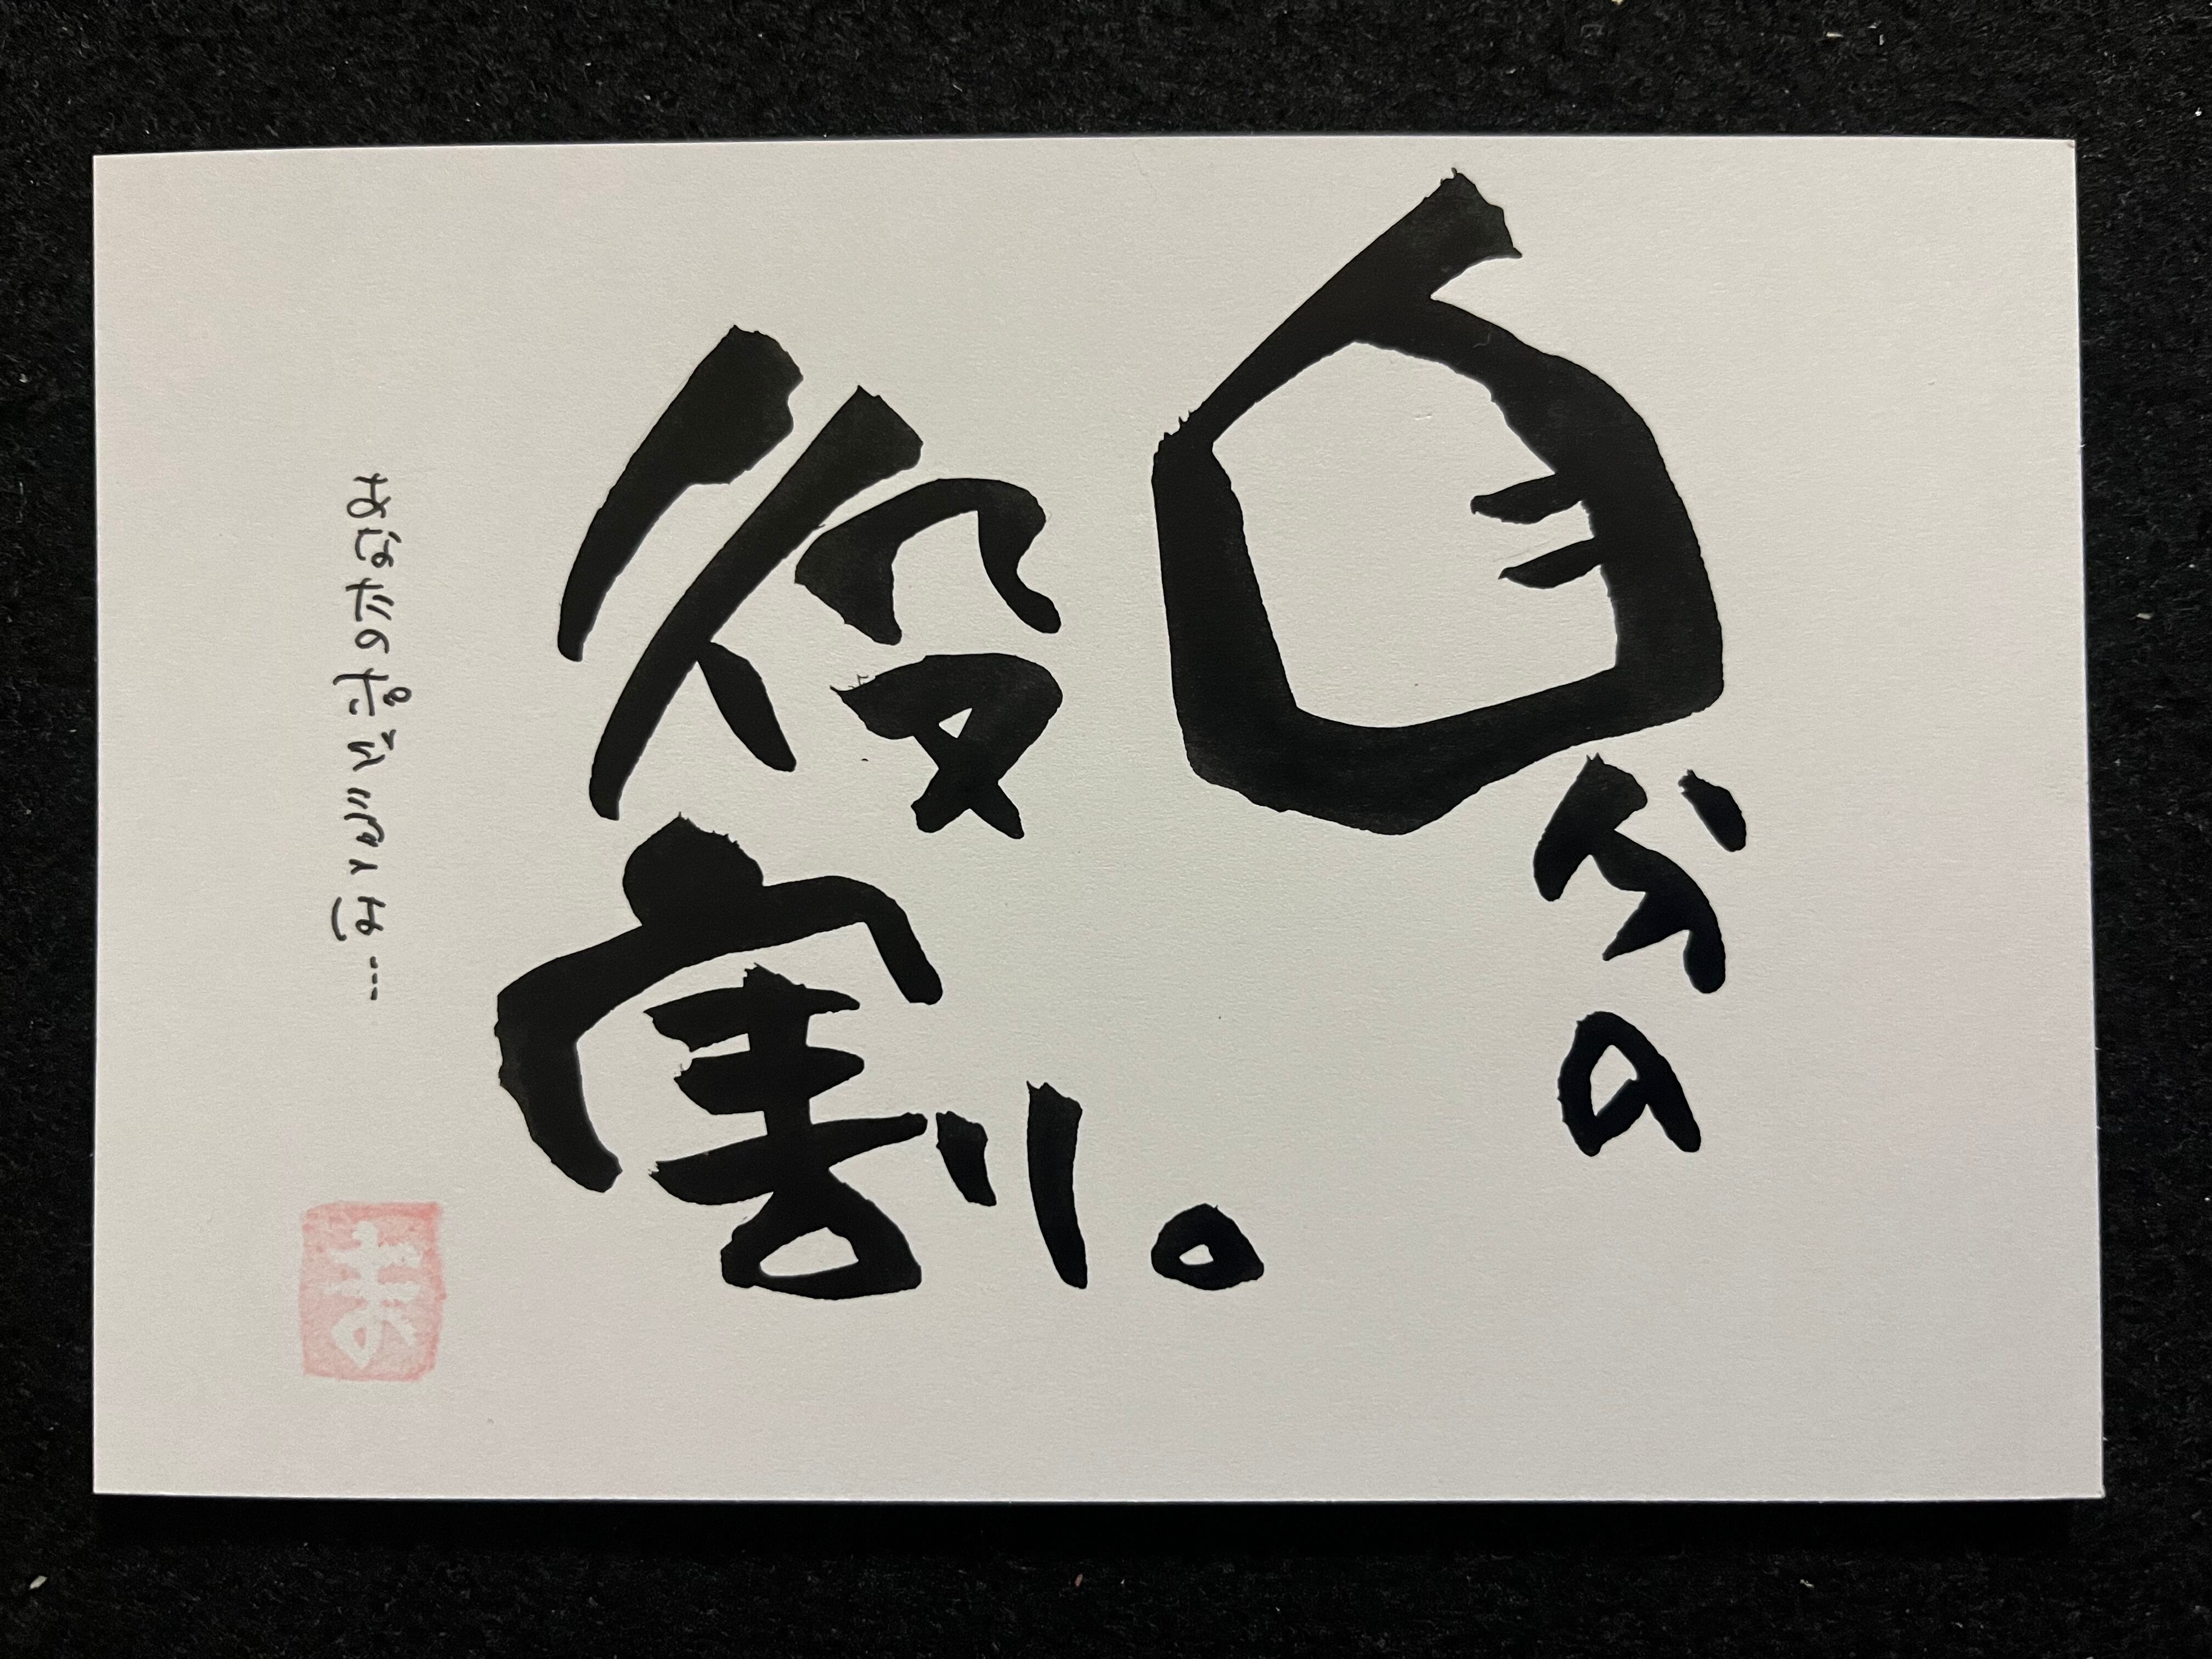 自分の
役割。
あなたのポジションは…
ま